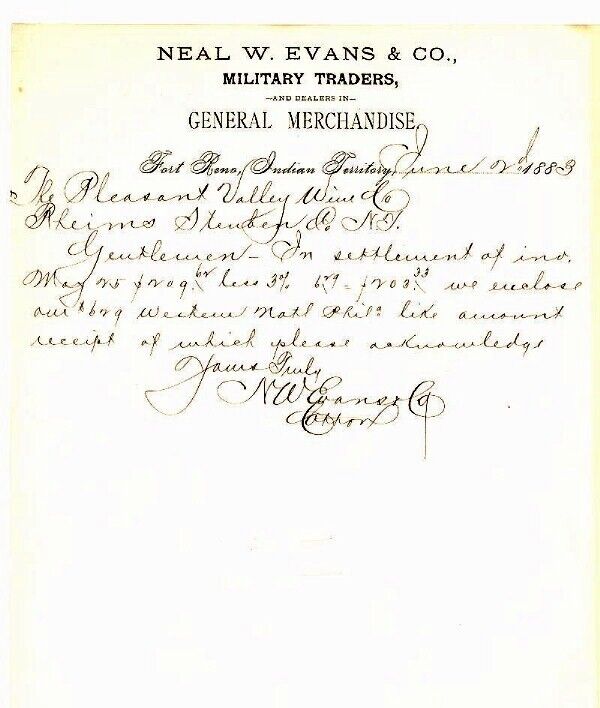 NEAL W. EVANS & CO.,
MILITARY TRADERS,
—AND DEALERS IN—
GENERAL MERCHANDISE.
Fort Reno, Indian Territory, June 2d 1883
The Pleasant Valley Wine Co
Rheims Steuben Co N.Y.
Gentlemen – In settlement of inv.
May 25 $209.62 less 3% 6.29 = $203.33 we enclose
our 629 Western Natl Phila like amount
receipt of which please acknowledge
Yours Truly
N W Evans & Co